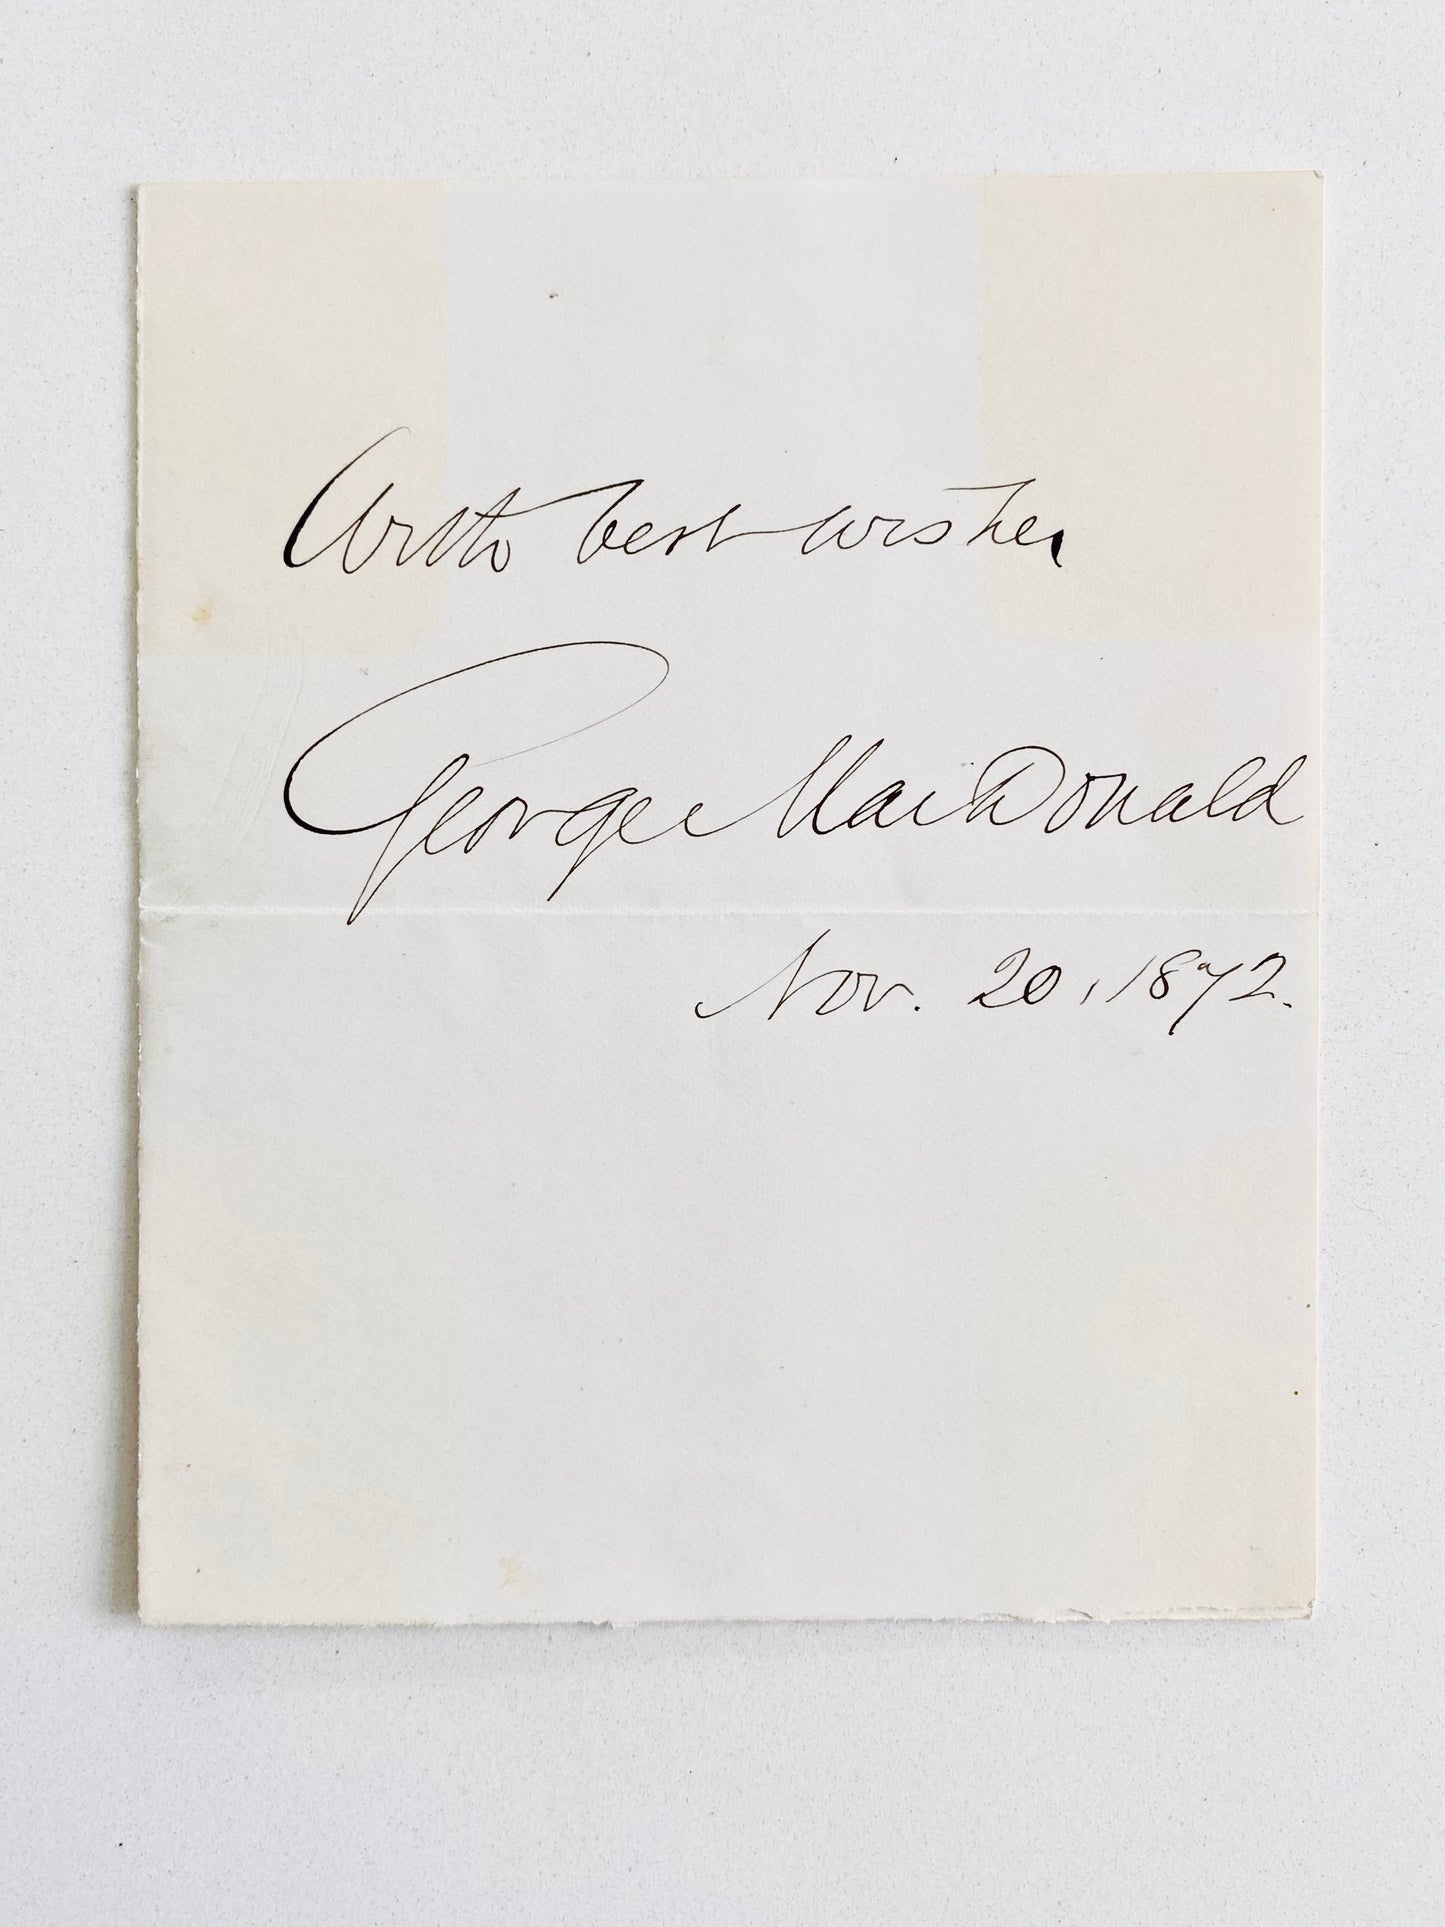 With best wishes
George MacDonald
Nov. 20, 1872.